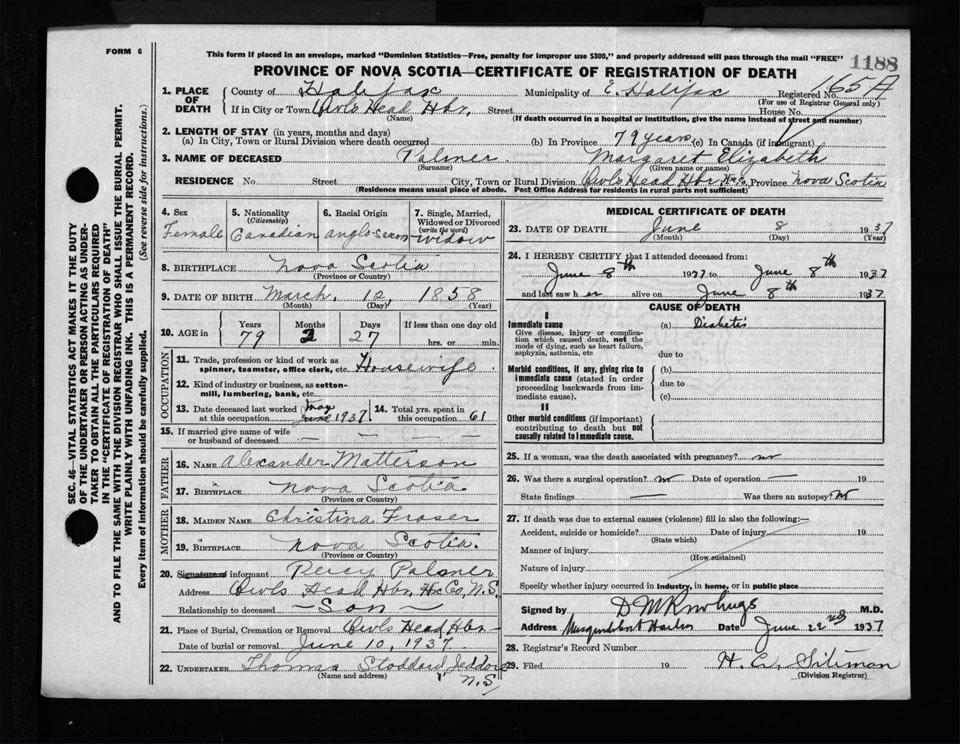 FORM 6
This form if placed in an envelope, marked "Dominion Statistics—Free, penalty for improper use $300," and properly addressed will pass through the mail "FREE"
1188
PROVINCE OF NOVA SCOTIA—CERTIFICATE OF REGISTRATION OF DEATH
165A
1. PLACE OF DEATH County of Halifax Municipality of E. Halifax Registered No.
(For use of Registrar General only)
If in City or Town Owls Head Hbr. Street House No.
(Name) (If death occurred in a hospital or institution, give the name instead of street and number)
2. LENGTH OF STAY (in years, months and days)
(a) In City, Town or Rural Division where death occurred (b) In Province 79 years (c) In Canada (if immigrant)
3. NAME OF DECEASED Palmer Margaret Elizabeth
(Surname) (Given name or names)
RESIDENCE No. Street City, Town or Rural Division Owls Head Hbr Hx Co Province Nova Scotia
(Residence means usual place of abode. Post Office Address for residents in rural parts not sufficient)
4. Sex 5. Nationality (Citizenship) 6. Racial Origin 7. Single, Married, Widowed or Divorced (write the word)
Female Canadian Anglo Saxon widow
8. BIRTHPLACE Nova Scotia
(Province or Country)
9. DATE OF BIRTH March 12, 1858
(Month) (Day) (Year)
10. AGE in Years Months Days If less than one day old
79 2 27 hrs. or min.
OCCUPATION
11. Trade, profession or kind of work as spinner, teamster, office clerk, etc. Housewife
12. Kind of industry or business, as cotton-mill, lumbering, bank, etc.
13. Date deceased last worked at this occupation May June 1937 14. Total yrs. spent in this occupation 61
15. If married give name of wife or husband of deceased — — — —
FATHER
16. NAME Alexander Matterson
17. BIRTHPLACE Nova Scotia
(Province or Country)
MOTHER
18. MAIDEN NAME Christina Fraser
19. BIRTHPLACE Nova Scotia.
(Province or Country)
20. Signature of informant Percy Palmer
Address Owls Head Hbr. Hx Co, N.S.
Relationship to deceased — Son —
21. Place of Burial, Cremation or Removal Owls Head Hbr
Date of burial or removal June 10, 1937
22. UNDERTAKER Thomas Stoddard Jeddore
(Name and address) N.S
MEDICAL CERTIFICATE OF DEATH
23. DATE OF DEATH June 8 1937
(Month) (Day) (Year)
24. I HEREBY CERTIFY that I attended deceased from:
June 8th 1937 to June 8th 1937
and last saw her alive on June 8th 1937
CAUSE OF DEATH
I
Immediate cause (a) Diabetis
Give disease, injury or complication which caused death, not the mode of dying, such as heart failure, asphyxia, asthenia, etc due to
Morbid conditions, if any, giving rise to immediate cause (stated in order proceeding backwards from immediate cause). (b)
due to
(c)
II
Other morbid conditions (if important) contributing to death but not causally related to immediate cause.
25. If a woman, was the death associated with pregnancy? no
26. Was there a surgical operation? no Date of operation — 19
State findings — Was there an autopsy? no
27. If death was due to external causes (violence) fill in also the following:—
Accident, suicide or homicide? Date of injury 19
(State which)
Manner of injury
(How sustained)
Nature of injury
Specify whether injury occurred in industry, in home, or in public place
Signed by D M Rowlings M.D.
Address Musquodoboit Harbor Date June 22nd 1937
28. Registrar's Record Number
29. Filed 19 H. G. Siteman
(Division Registrar)
SEC. 46—VITAL STATISTICS ACT MAKES IT THE DUTY
OF THE UNDERTAKER OR PERSON ACTING AS UNDER-
TAKER TO OBTAIN ALL THE PARTICULARS REQUIRED
IN THE "CERTIFICATE OF REGISTRATION OF DEATH"
AND TO FILE THE SAME WITH THE DIVISION REGISTRAR WHO SHALL ISSUE THE BURIAL PERMIT.
WRITE PLAINLY WITH UNFADING INK. THIS IS A PERMANENT RECORD.
Every item of information should be carefully supplied. (See reverse side for instructions.)